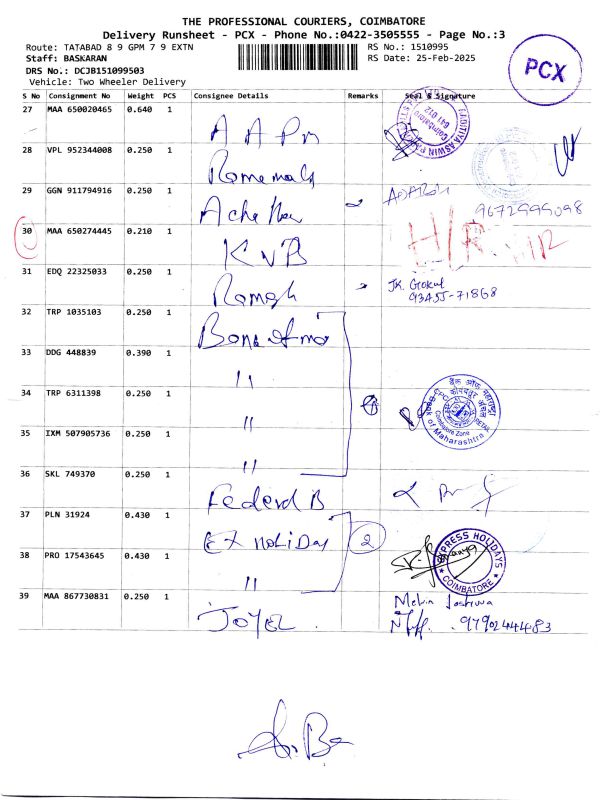 THE PROFESSIONAL COURIERS, COIMBATORE
Delivery Runsheet - PCX - Phone No.:0422-3505555 - Page No.:3
Route: TATABAD 8 9 GPM 7 9 EXTN
RS No.: 1510995
Staff: BASKARAN
RS Date: 25-Feb-2025
DRS No.: DCJB151099503
Vehicle: Two Wheeler Delivery
PCX
S No Consignment No Weight PCS Consignee Details Remarks Seal & Signature
27 MAA 650020465 0.640 1
28 VPL 952344008 0.250 1
29 GGN 911794916 0.250 1
9672999098
30 MAA 650274445 0.210 1 KVB
31 EDQ 22325033 0.250 1 Ramesh JK. Gokul
93455-71868
32 TRP 1035103 0.250 1
33 DDG 448839 0.390 1 "
34 TRP 6311398 0.250 1 "
बैंक ऑफ महाराष्ट्र
Coimbatore Zone
Bank of Maharashtra
35 IXM 507905736 0.250 1 "
36 SKL 749370 0.250 1 Federal B
37 PLN 31924 0.430 1 EX HoliDay 2
EXPRESS HOLIDAYS
* COIMBATORE *
38 PRO 17543645 0.430 1 "
39 MAA 867730831 0.250 1 JOYEL Melvin Joshuwa
9790244483